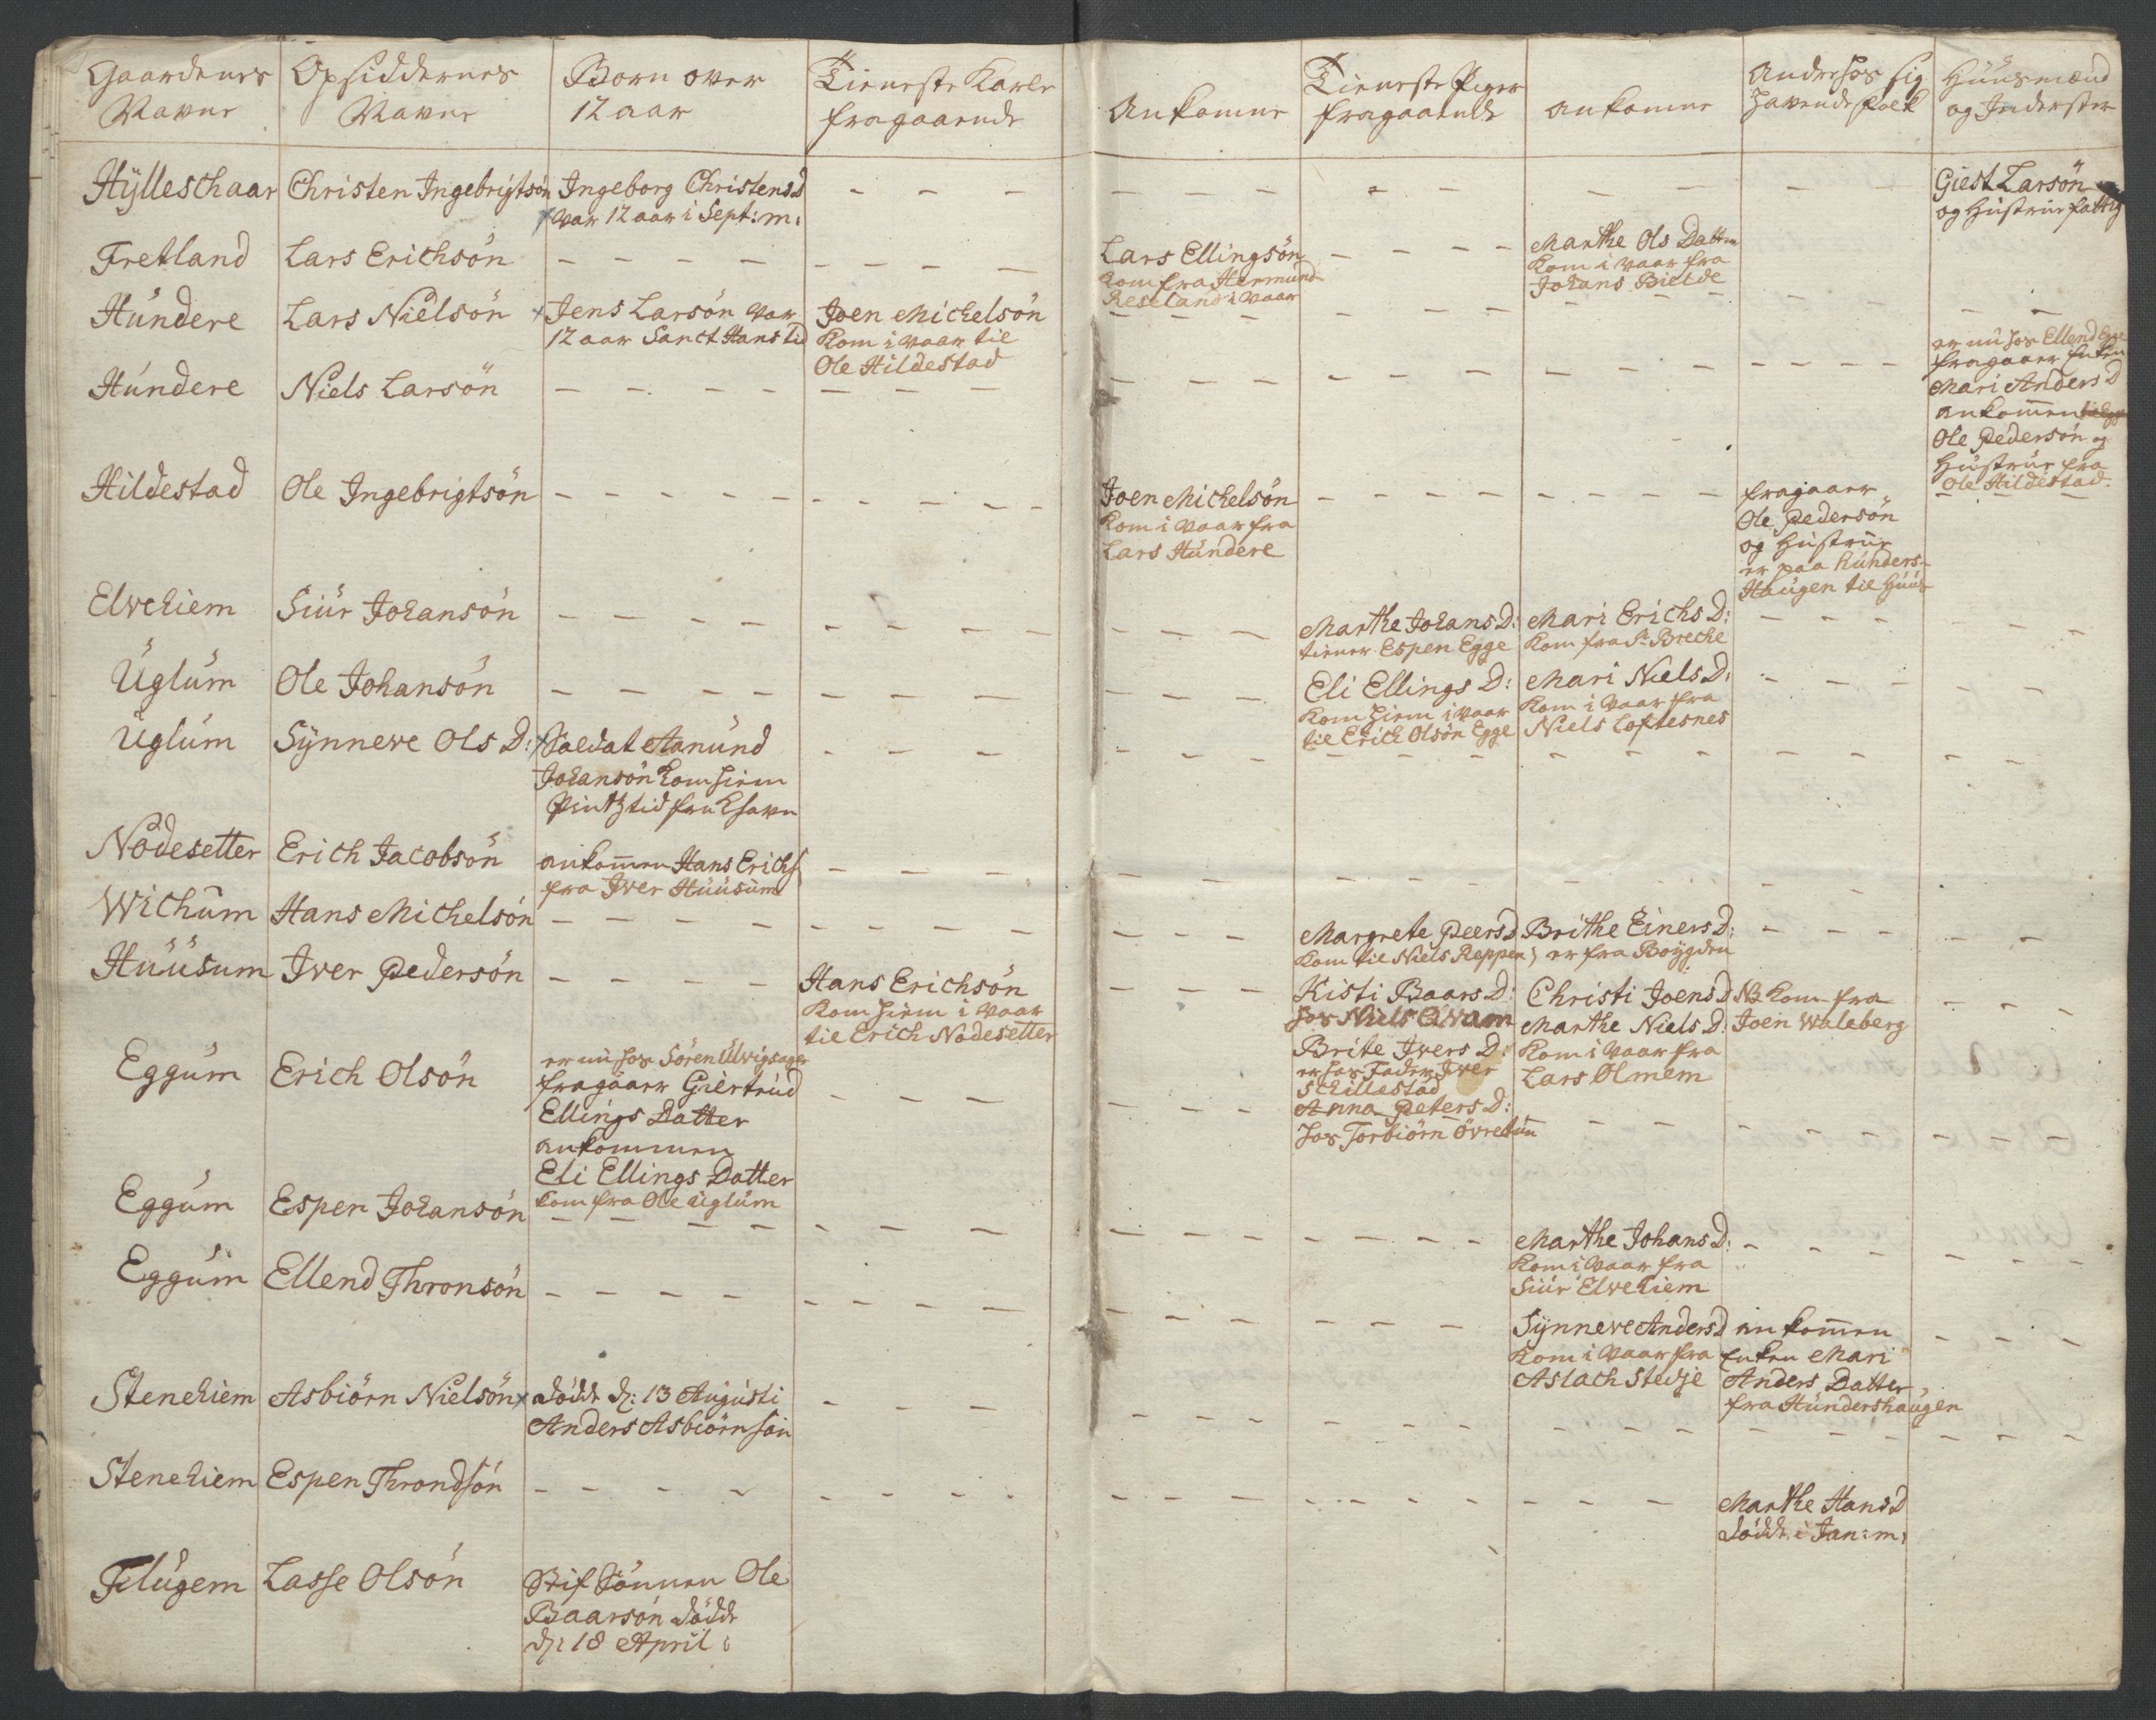 Gaardenes Navne
Opsiddernes Navne
Børn over 12 aar
Tieneste Karle fragaaende
Ankomne
Tieneste Piger fragaaende
ankomne
Andre hos sig havende Folk
Huusmænd og Inderster
Hÿlleschaar
Christen Ingebrigtsøn
Ingeborg ChristensD
var 12 aar i Sept: m:
- - -
- - -
- - -
- -
- -
Giest Larsøn
og Hustrue fattig
Fretland
Lars Erichsøn
- - - -
- - - -
Lars Ellingsøn
kom fra Hermund
Reseland i Vaar
- - - -
Marthe Ols Datter
kom i vaar fra
Johans Bielde
Hundere
Lars Nielsøn
Jens Larsøn var
12 aar Sanct Hans Tid
Joen Michelsøn
kom i vaar til
Ole Hildestad
- - -
- - -
- - -
- -
- -
Hundere
Niels Larsøn
- - - -
- - -
- - -
- - -
- - -
- - - -
er nu hos Ellend Egge
fragaaer Enken
Mari AndersD
ankommen
Ole Pedersøn og
Hustrue fra
Ole Hildestad.
Hildestad
Ole Ingebrigtsøn
- - - - -
- - - - -
Joen Michelsøn
kom i vaar fra
Lars Hundere
- - - -
- - - -
fragaaer
Ole Pedersøn
og Hustrue
er paa hunders-
Haugen til Huus
- - -
Elvehiem
Siur Johansøn
- - - -
- - - - -
- - -
Marthe JohansD:
tiener Espen Egge
Mari ErichsD:
kom fra Sr Breche
- - -
- - -
Uglum
Ole Johansøn
- - - -
- - - -
- - -
Eli EllingsD:
kom hiem i vaar
til Erich Olsøn Egge
Mari NielsD:
kom i vaar fra
Niels Loftesnes
- - - -
- -
Uglum
Synneve OlsD:
Soldat Aamund
Johansøn kom hiem
Pintztid fra Khavn
- - -
- - -
- - -
- - -
- - -
- -
Nødesetter
Erich Jacobsøn
ankommen Hans Erichs
fra Iver Huusum
- - - -
- - -
- - -
- - -
- - -
- -
Wichum
Hans Michelsøn
- - - -
- - - -
- - -
Margrete PeersD
kom til Niels Reppen
Brithe EinersD:
er fra Bøygden
- - - -
- -
Huusum
Iver Pedersøn
- - - -
Hans Erichsøn
kom hiem i vaar
til Erich Nødesetter
- - -
Kisti BaarsD:
hos Niels Qvam
Brite IversD:
er hos Fader Iver
Schillestad
Anna PetersD:
hos Torbiørn Øvretun
Christi JoensD
Marthe NielsD:
kom i vaar fra
Lars Olmem
NB kom fra
Joen Waleberg
- - -
Eggum
Erich Olsøn
er nu hos Søren Ulvigsager
fragaaer Giertrud
Ellings Datter
ankommen
Eli Ellings Datter
kom fra Ole Uglum
- - -
- - -
- - -
- - - -
- - - -
Eggum
Espen Johansøn
- - - -
- - -
- - - -
- - - -
Marthe JohansD:
kom i vaar fra
Siur Elvehiem
- - - -
- - -
Eggum
Ellend Thronsøn
- - - -
- - - -
- - - -
- - - -
SynneveAndersD
kom i vaar fra
Aslach Stedje
ankommen
Enken Mari
Anders Datter
fra Hundershaugen
- - -
Stenehiem
Asbiørn Nielsøn
døde d: 13 Augusti
Anders Asbiørnsøn
- - -
- - - -
- - - -
- - -
- - -
- - -
Stenehiem
Espen Throndsøn
- - - -
- - - -
- - - -
- - - -
- - -
Marthe HansD
døde i Jan: m:
Flugem
Lasse Olsøn
Stif Sønnen Ole
Baarsøn døde
d: 18 April: